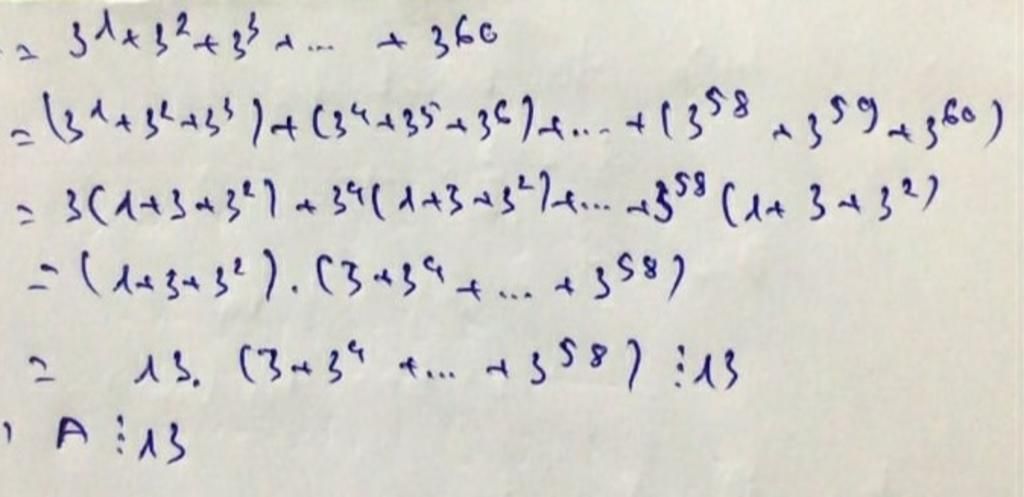 = 3¹ + 3² + 3³ + ... + 3⁶⁰
= (3¹ + 3² + 3³) + (3⁴ + 3⁵ + 3⁶) + ... + (3⁵⁸ + 3⁵⁹ + 3⁶⁰)
= 3(1 + 3 + 3²) + 3⁴(1 + 3 + 3²) + ... + 3⁵⁸(1 + 3 + 3²)
= (1 + 3 + 3²) . (3 + 3⁴ + ... + 3⁵⁸)
= 13. (3 + 3⁴ + ... + 3⁵⁸) ⋮ 13
A ⋮ 13